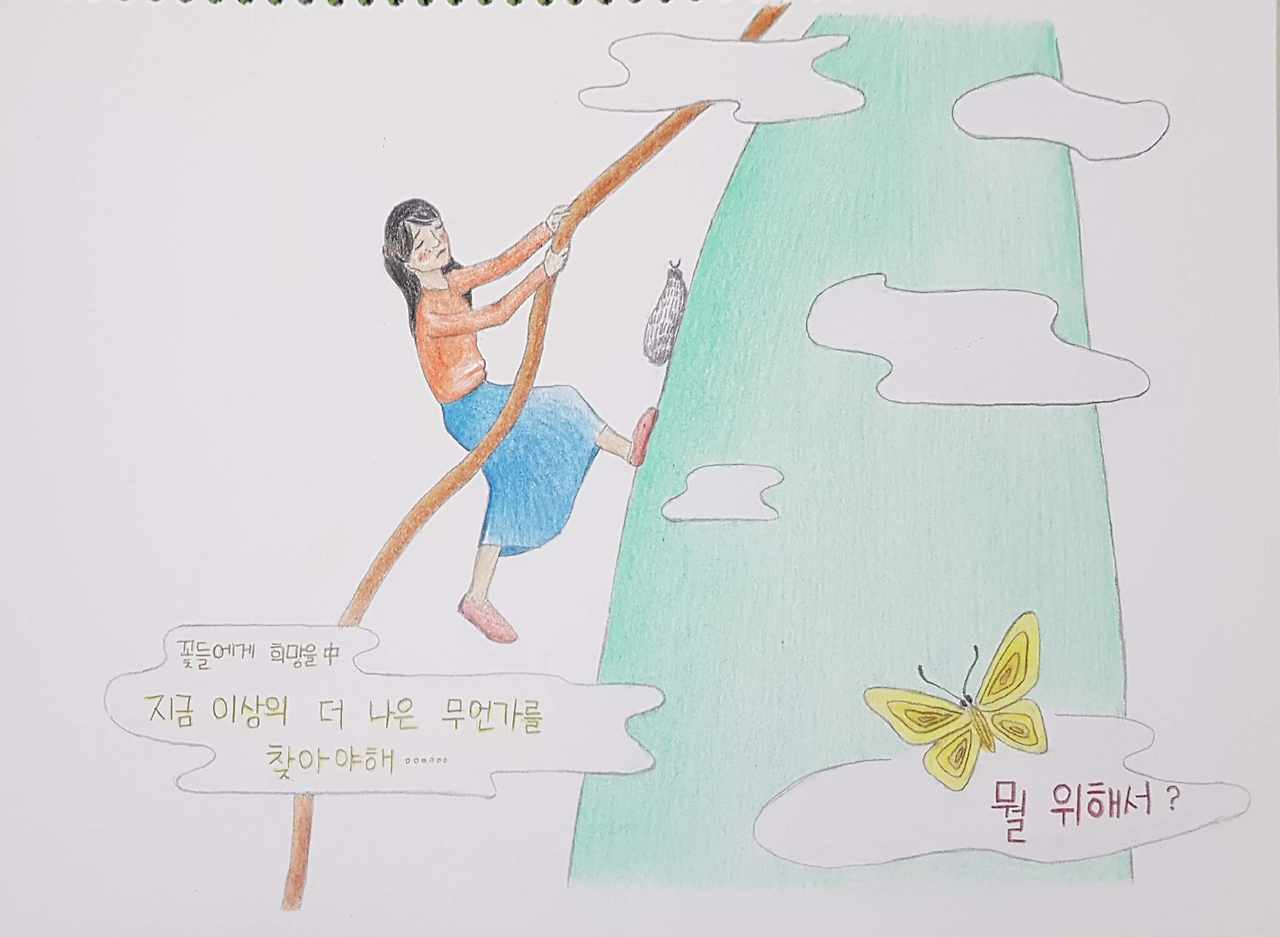 꽃들에게 희망을 中
지금 이상의 더 나은 무언가를
찾아야해 ......
뭘 위해서?